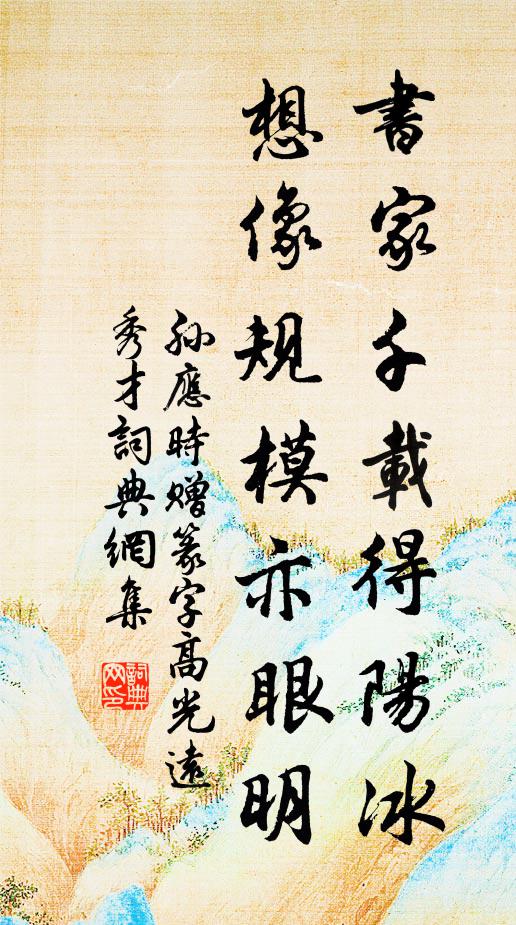 書家千載得陽冰
想像規模亦眼明
孫應時贈篆字高光遠
秀才詞典網集
詞典網印